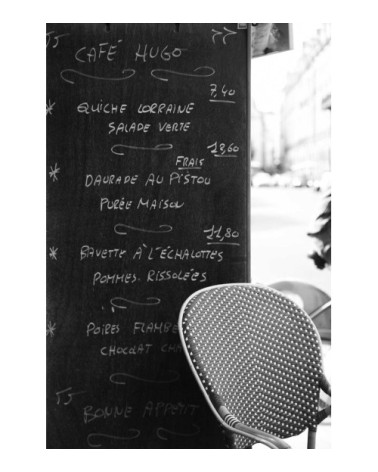 CAFÉ HUGO
7,40
* QUICHE LORRAINE
SALADE VERTE
FRAIS
* DAURADE AU PISTOU
PURÉE MAISON
11,80
* BAVETTE À L'ÉCHALOTTES
POMMES RISSOLÉES
* POIRES FLAMBE
CHOCOLAT
BONNE APPETIT